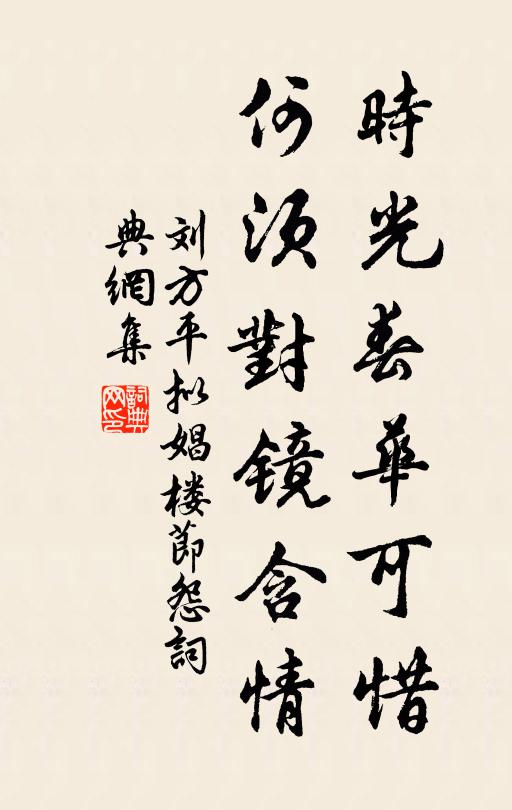 時光春華可惜
何須對鏡含情
刘方平拟娼楼節怨詞
典網集
詞典网印